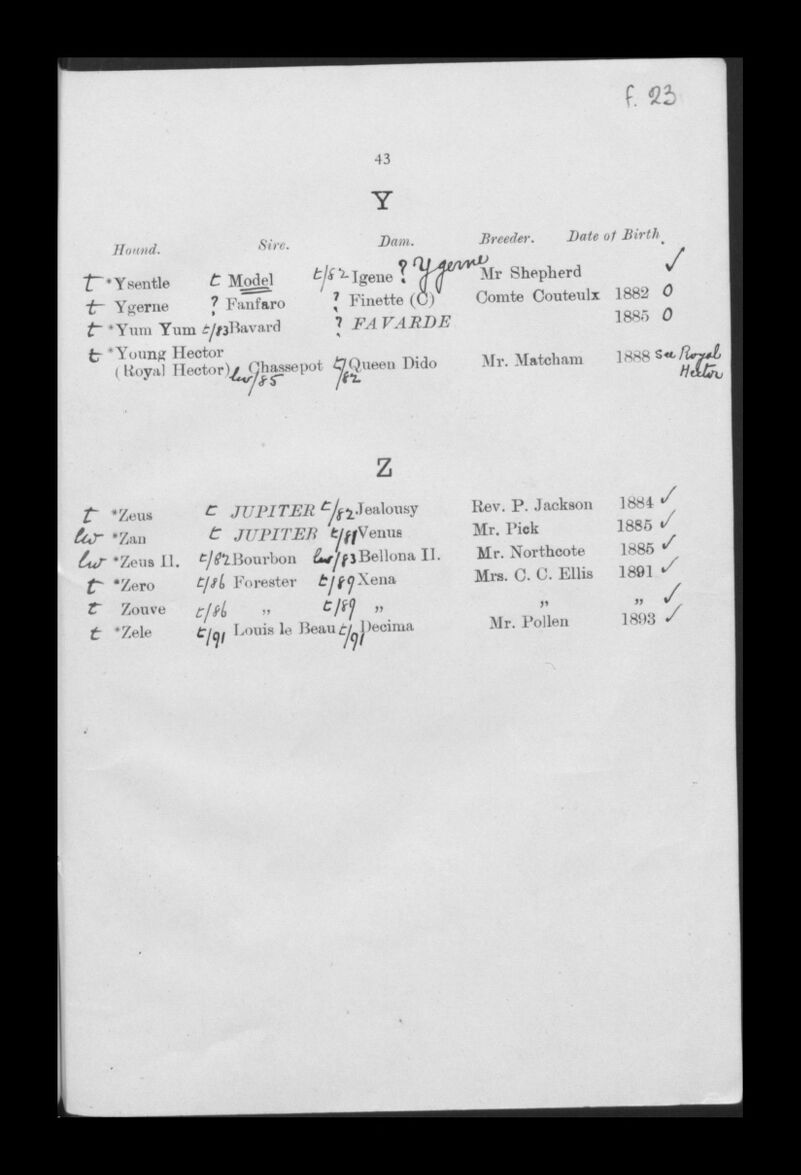 f. 23
43
Y
Hound. Sire. Dam. Breeder. Date of Birth.
t *Ysentle t Model t/82 Igene ? Ygerne Mr Shepherd ✓
t Ygerne ? Fanfaro ? Finette (C) Comte Couteulx 1882 0
t *Yum Yum t/83 Bavard ? FAVARDE 1885 0
t *Young Hector
(Royal Hector) lw/85 Chassepot t/82 Queen Dido Mr. Matcham 1888 See Royal Hector
Z
t *Zeus t JUPITER t/82 Jealousy Rev. P. Jackson 1884 ✓
lw *Zan t JUPITER t/81 Venus Mr. Pick 1885 ✓
lw *Zeus II. t/82 Bourbon lw/83 Bellona II. Mr. Northcote 1885 ✓
t *Zero t/86 Forester t/89 Xena Mrs. C. C. Ellis 1891 ✓
t Zouve t/86 „ t/89 „ „ „ ✓
t *Zele t/91 Louis le Beau t/91 Decima Mr. Pollen 1893 ✓